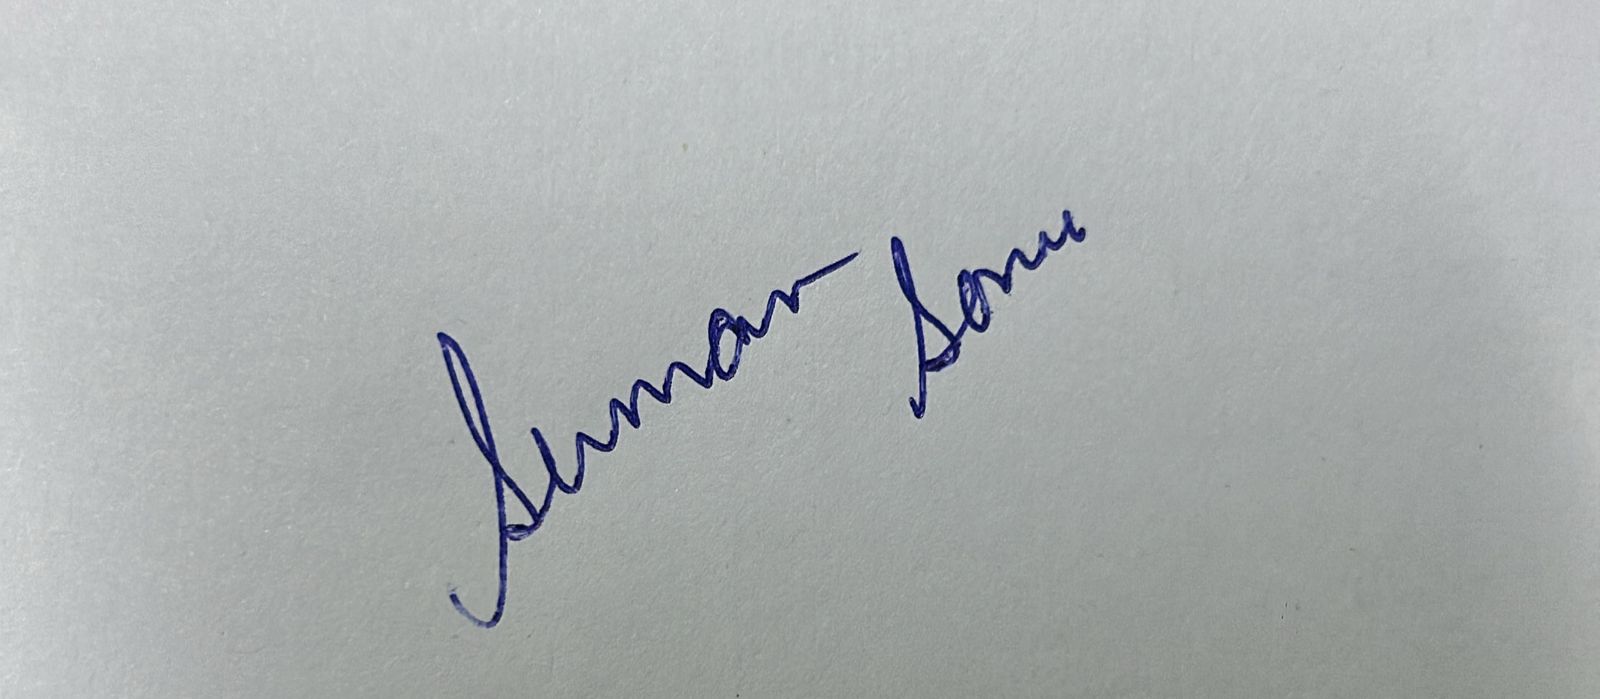 Suman Sonu